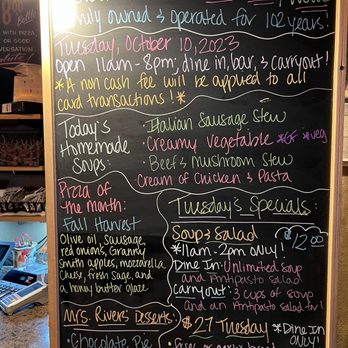 WITH PIZZA
OR GOOD
Family owned & operated for 102 years!
Tuesday, October 10, 2023
Open 11am - 8pm; dine in, bar, & carryout!
*A non cash fee will be applied to all
card transactions!*
Today's
Homemade
Soups:
• Italian Sausage Stew
• Creamy Vegetable *GF *veg
• Beef & Mushroom Stew
Cream of Chicken & Pasta
Pizza of
the Month:
Fall Harvest
Olive oil, sausage,
red onions, Granny
Smith apples, mozzarella
Cheese, fresh Sage, and
a honey butter glaze
Tuesday's Specials:
Soup & Salad $12.00
*11am-2pm only!
Dine In: Unlimited soup
and Antipasto salad
Carryout: 3 cups of soup
and an Antipasto salad for 1
Mrs. Rivers Desserts:
• Chocolate Pie
$27 Tuesday *Dine IN
ONLY!